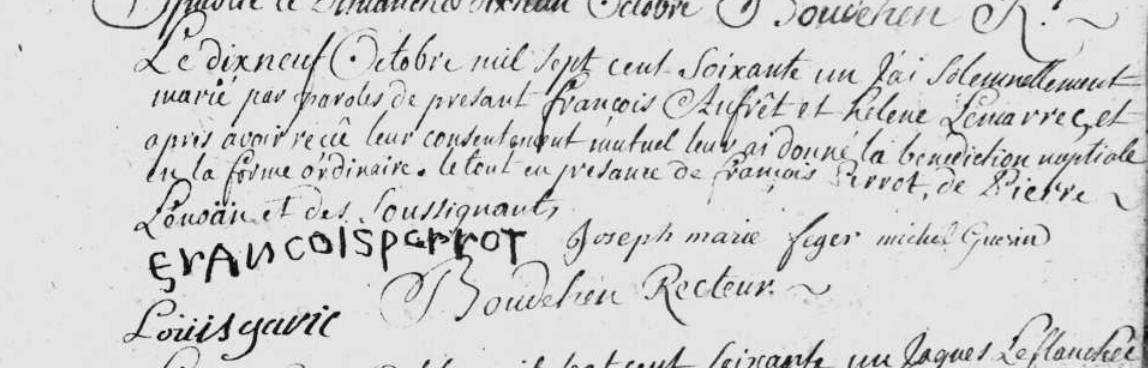 le Dimanche dixneuf Octobre Boudehen R.
Le dixneuf Octobre mil sept cent Soixante un J'ai solemnellement
marié par paroles de presant françois Aufrêt et hélene Lemarrec, et
après avoir reçû leur consentement mutuel leur ai donné la benediction nuptiale
en la forme órdinaire. le tout en presance de françois Perrot, de Pierre
et des Soussignants
FrANcoIsperroT Joseph marie feger michel Guerin
Boudehen Recteur.
Louisgaric
sept cent soixante un Jaques Leflanchec